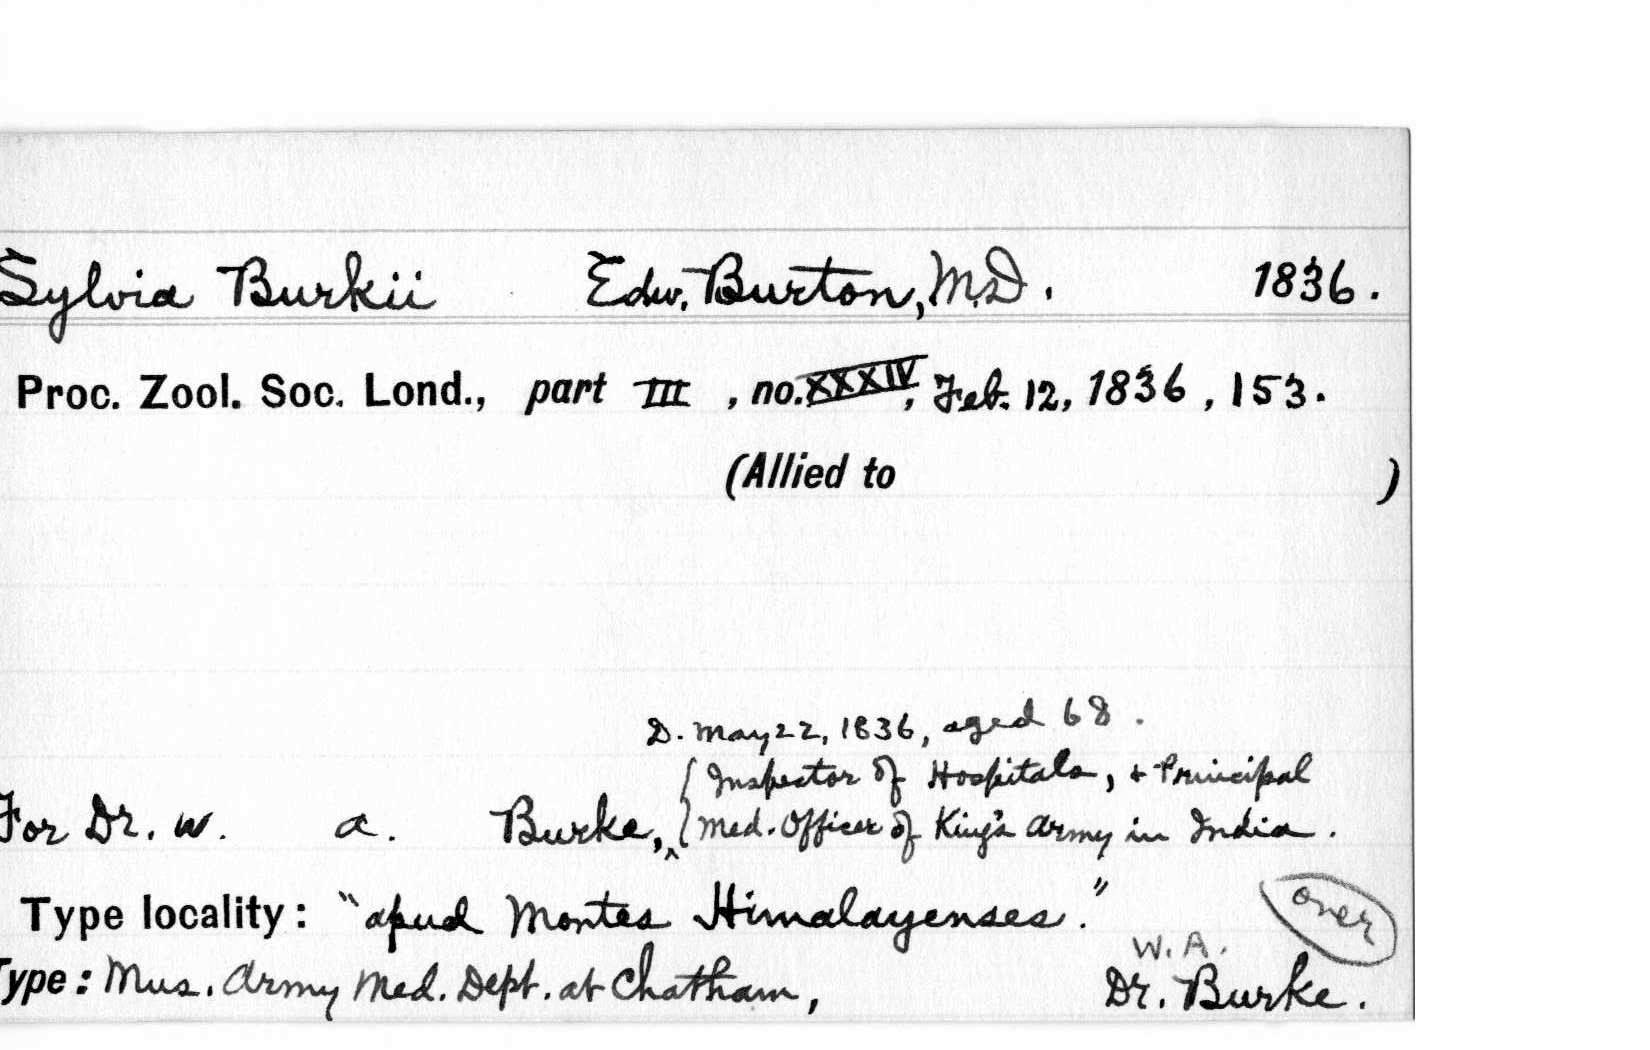 Sylvia Burkii Edw. Burton, M.D. 1836.
Proc. Zool. Soc. Lond., part III, no. XXXIV, Feb. 12, 1836, 153.
(Allied to )
D. May 22, 1836, aged 68.
Inspector of Hospitals, & Principal
For Dr. W. A. Burke, Med. Officer of King's Army in India.
Type locality: "apud Montes Himalayenses."
over
W. A.
Type: Mus. Army Med. Dept. at Chatham, Dr. Burke.